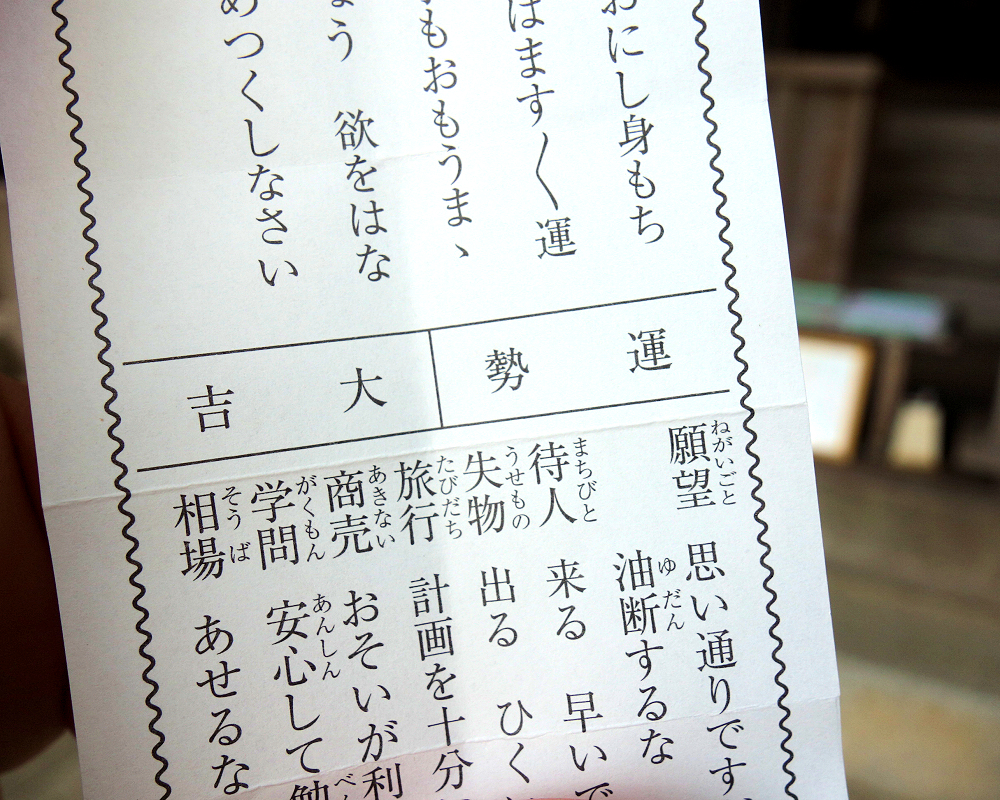 おにし身もち
はます〱運
もおもうまゝ
う 欲をはな
めつくしなさい
運勢 大吉
願望 思い通りです
ねがいごと
油断するな
ゆだん
待人 来る 早いで
まちびと
失物 出る ひく
うせもの
旅行 計画を十分
たびだち
商売 おそいが利
あきない
学問 安心して勉
がくもん あんしん べん
相場 あせるな
そうば